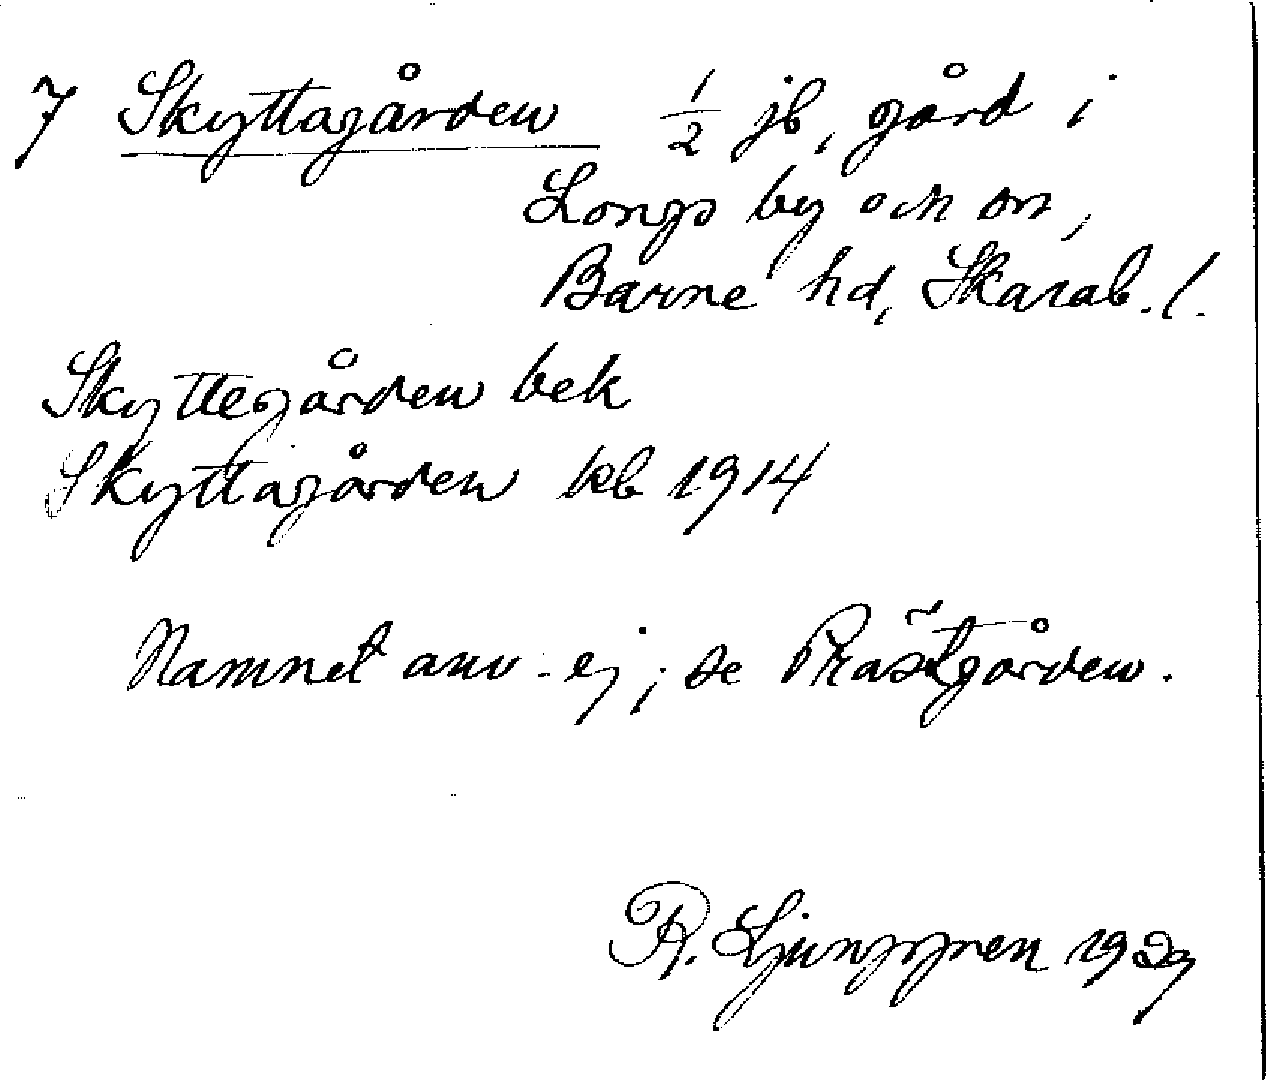 7 Skyttagården 1/2 jb, gård i
Longs by och sn,
Barne hd, Skarab. l.
Skyttegården bek
Skyttagården kb 1914
Namnet anv. ej; se Prästgården.
R. Ljunggren 1929